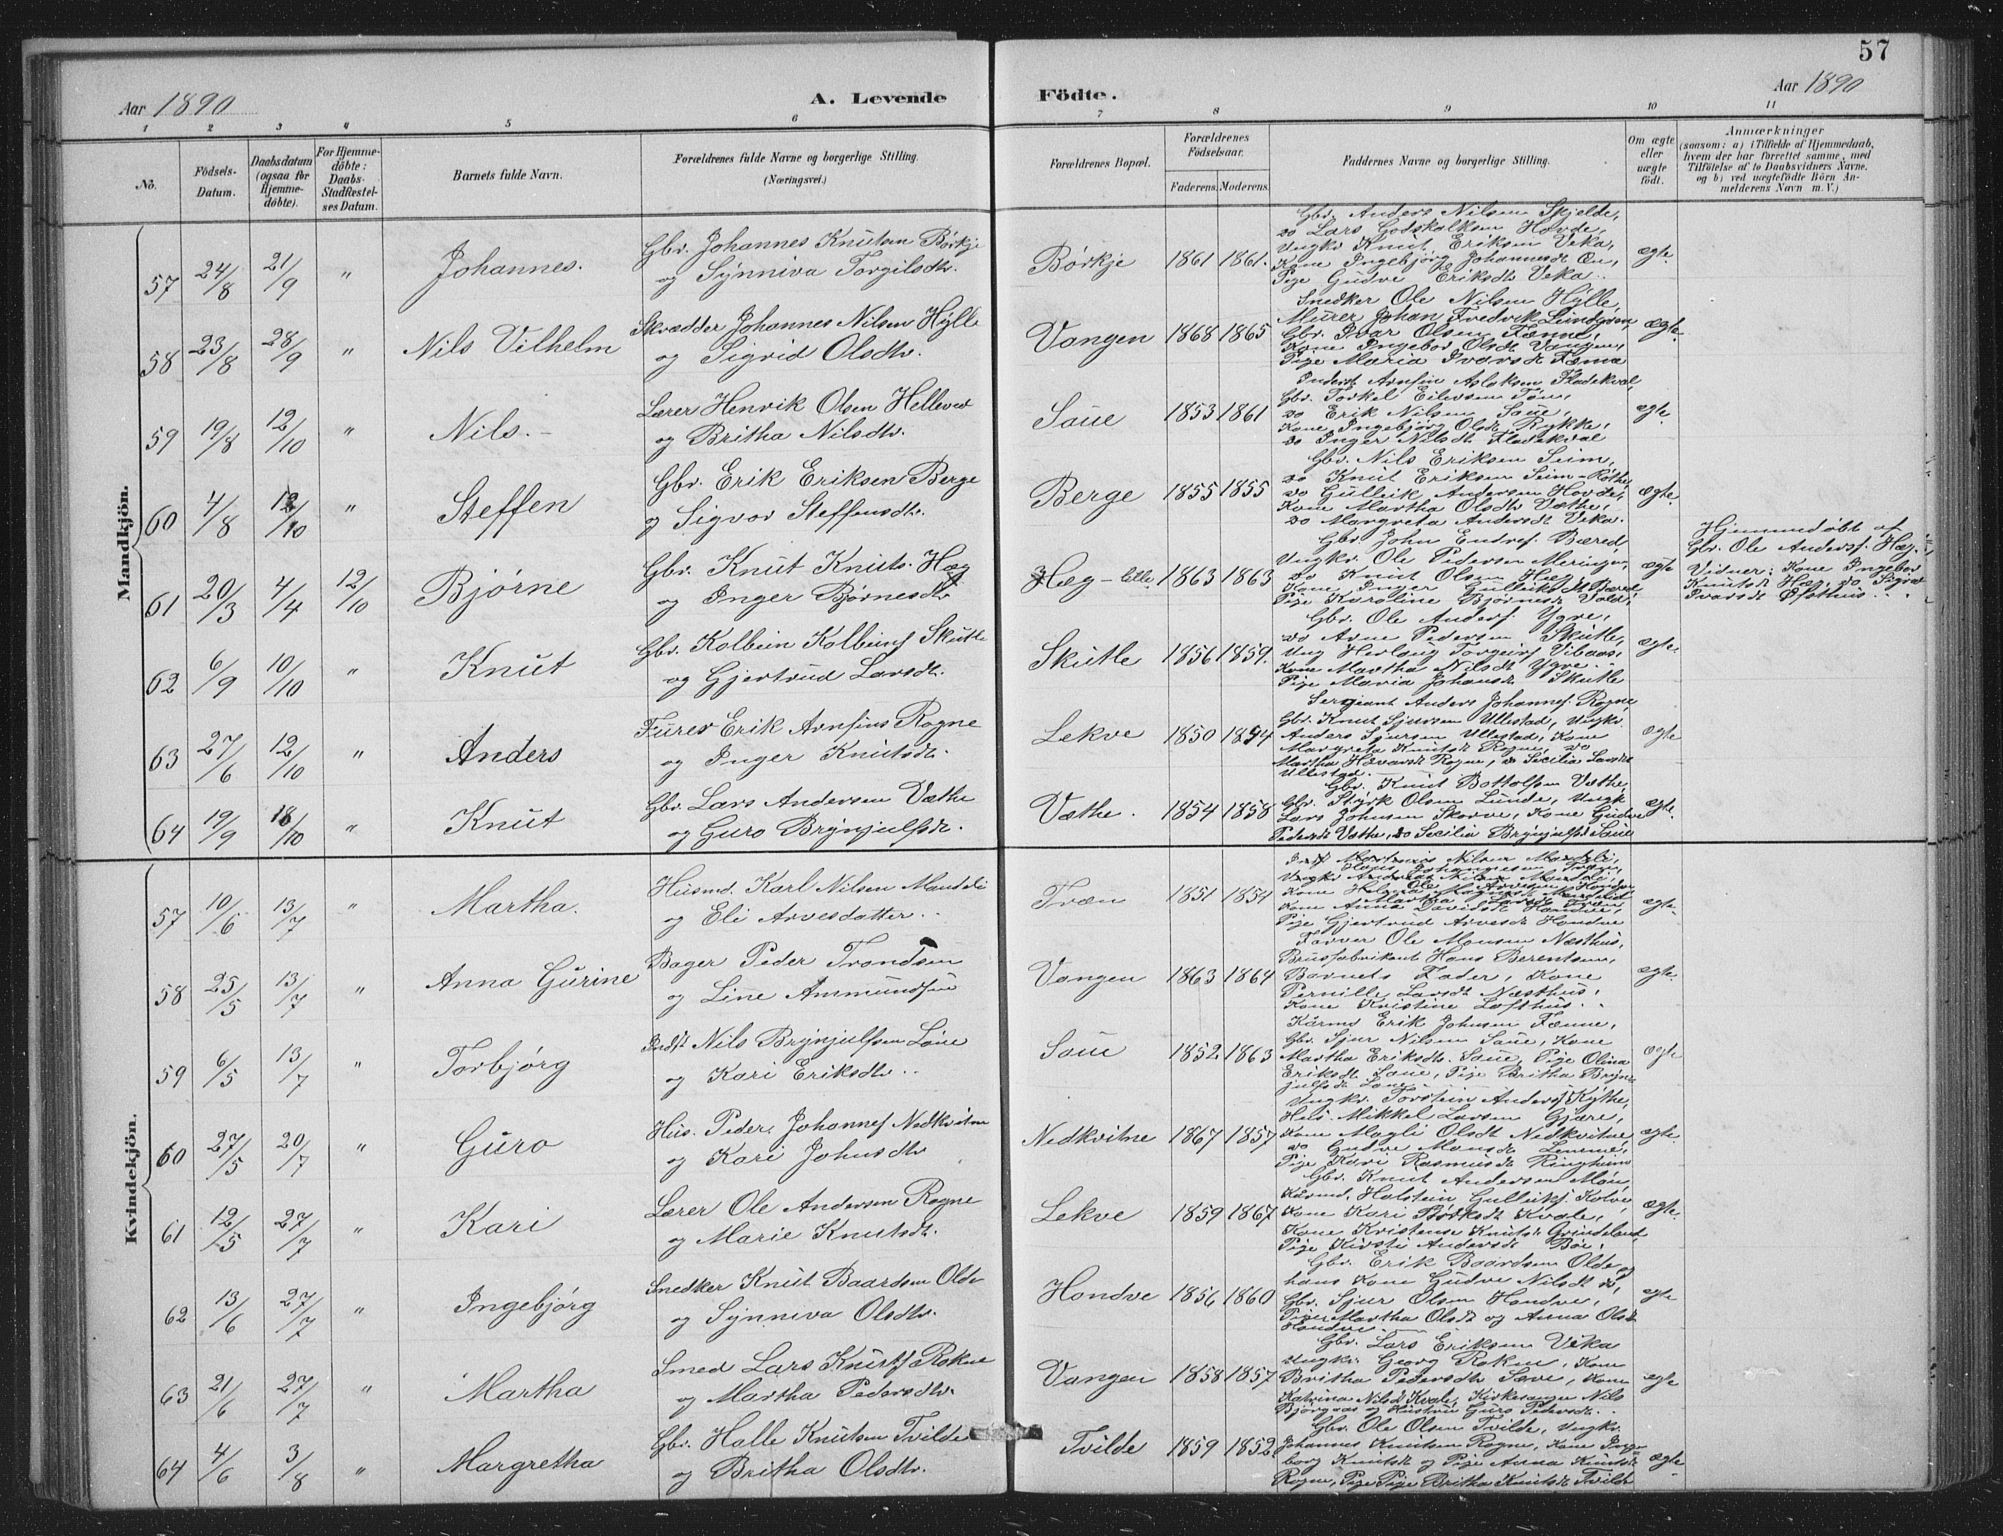 57
Aar 1890
A. Levende
Födte.
Aar 1890
1 2 3 4 5 6 7 8 9 10 11
No.
Födsels-
Datum.
Daabsdatum
(ogsaa for
Hjemme-
döbte).
For Hjemme-
döbte:
Daabs-
Stadfæstel-
ses Datum.
Barnets fulde Navn.
Forældrenes fulde Navne og borgerlige Stilling.
(Næringsvei.)
Forældrenes Bopæl.
Forældrenes
Födselsaar.
Faderens. Moderens.
Faddernes Navne og borgerlige Stilling.
Om ægte
eller
uægte
födt.
Anmærkninger
(saasom: a) i Tilfælde af Hjemmedaab,
hvem der har forrettet samme, med
Tilföielse af to Daabsvidners Navne.
og b) ved uægtefödte Börn An-
melderens Navn m. V.)
Mandkjön.
57 24/8 21/9 " Johannes.
Gbr. Johannes Knutsen Børkje
og Synniva Torgilsdtr.
Børkje 1861 1861. ægte
Gbr. Anders Nilsen Skjelde,
do Lars Godskalksen Hovde,
Ungkr Knut Eriksen Veka,
Kone Ingebjørg Johannesdt Øn,
Pige Gudve Eriksdt Veka.
58 23/8 28/9 " Nils Vilhelm
Skrædder Johannes Nilsen Hylle
og Sigrid Olsdtr.
Vangen 1868 1865 ægte
Snedker Ole Nilsen Hylle,
Murer Johan Fredrik Lundgren
Gbr. Ivar Olsen Fenne,
Kone Ingebor Olsdt Vangen,
Pige Maria Ivarsdt Fenne
59 19/8 12/10 " Nils.
Lærer Henrik Olsen Hellever
og Britha Nilsdtr.
Saue 1853 1861 ægte
Inderst Arnfin Aslaksen Fladekval,
Gbr. Torkel Eilevsen Tøn,
do Erik Nilsen Saue,
Kone Ingebjørg Olsdt Rykke,
do Inger Nilsdt Fladekval
60 4/8 12/10 " Steffen
Gbr. Erik Eriksen Berge
og Sigvor Steffensdtr.
Berge 1855 1855 ægte
Gbr. Nils Eriksen Seim,
do Knut Eriksen Seim-Røthe,
do Gulleik Andersen Hovde,
Kone Martha Olsdtr Væthe,
do Margreta Andersdt Veka.
61 20/3 4/4 12/10 Bjørne
Gbr. Knut Knuts. Hæg
og Inger Bjørnesdtr
Hæg-lille 1863 1863 ægte
Gbr. John Endref. Bæred,
Ungkr. Ole Pedersen Meringen,
do Knut Olsen Hæg
Kone Inger Gulleiksdt Bæred
Pige Karoline Bjørnesdt
Hjemmedøbt af
Gbr. Ole Andersf. Hæg.
Vidner: Kone Ingebor
Knutsdt Hæg, do Sigrid
Ivarsdt Øfsthus.
62 6/9 10/10 " Knut
Gbr. Kolbein Kolbeinsf Skutle
og Gjertrud Larsdt.
Skutle 1856 1859. ægte
Gbr. Ole Andersf Ygre,
do Arne Pedersen Skutle,
Ung Herlaug Torgeirsf Vibaas,
Kone Martha Nilsdt Ygre.
Pige Maria Johansdt Skutle
63 27/6 12/10 " Anders
Furer Erik Arnfins Rogne
og Inger Knutsdt.
Lekve 1850 1854 ægte
Sergeant Anders Johannesf. Rogne,
Gbr. Knut Sjursen Ullestad, Ungkr.
Anders Sjursen Ullestad, Kone
Margreta Knutsdt Rogne, do
Martha Havarsdt Rogne, do Secilia Larsdt
Ullestad.
64 19/9 18/10 " Knut
Gbr. Lars Andersen Væthe
og Guro Brynjulfsdt.
Væthe. 1854 1858 ægte.
Gbr. Knut Bottolfsen Væthe,
Gbr. Styrk Olsen Lunde, Ungk
Lars Johnsen Skorve, Kone Gudve
Pedersdt Væthe, do Secilia Brynjulfsdt Saue
Kvindekjön.
57 10/5 13/7 " Martha.
Husmd. Karl Nilsen Mandeli
og Eli Arvesdatter.
Træn 1851 1854 ægte.
Kone Anna Davidsdt Hondve,
Pige Gjertrud Arvesdt Hondve
58 25/5 13/7 " Anna Gurine
Bager Peder Trondsen
og Line Ammundsen
Vangen 1863 1864 ægte.
Farver Ole Monsen Næsthus,
Brusfabrikant Hans Berentsen,
Barnets Fader, Kone
Pernille Larsdt Næsthus,
Kone Kristine Lofthus.
59 6/5 13/7 " Torbjørg
Indst Nils Brynjulfsen Løne
og Kari Eriksdtr.
Saue 1852. 1863 ægte
Kårmd Erik Johnsen Fenne,
Gbr. Sjur Nilsen Saue, Kone
Martha Eriksdt. Saue, Pige Olina
Eriksdt Saue, Pige Britha Bryn-
julfsdt Løne
60 27/5 20/7 " Guro
Hus. Peder Johannesf Nedkvitne
og Kari Johnsdtr
Nedkvitne 1867 1857 ægte.
Ungkr. Torstein Andersf Kythe,
Hus. Mikkel Larsen Gjære,
Kone Magli Olsdt Nedkvitne,
do Gudve Monsdt Lemme,
Pige Kari Rasmusdt Ringheim
61 12/5 27/7 " Kari
Lærer Ole Andersen Rogne
og Marie Knutsdt.
Lekve 1859 1867 ægte.
Gbr. Knut Andersen Møn,
Kårmd. Holstein Gulleiksf Kolve,
Kone Kari Børksdt Kvale,
Kone Kristense Knutsdt Grindeland,
Pige Kirsti Andersdt Bøe.
62 13/6 27/7 " Ingebjørg
Snedker Knut Baardsen Olde
og Synniva Olsdtr.
Hondve 1856 1860 ægte
Gbr. Erik Baardsen Olde og
hans Kone Gudve Nilsdt do,
Gbr. Sjur Olsen Hondve,
Piger Martha Olsdt og Anna Olsdt
Hondve.
63 21/6 27/7 " Martha
Smed Lars Knutsf Rokne
og Martha Pedersdtr.
Vangen 1858 1857 ægte
Gbr. Lars Eriksen Veka
Ungkr. Georg Rokne, Kone
Britha Pedersdtr Save, Kone
Katrina Nilsd Kvale, Kirkesanger Nils
Bjørgaas og Hustru Guro Pedersdt.
64 4/6 3/8 " Margretha
Gbr. Halle Knutsen Tvilde
og Britha Olsdtr.
Tvilde 1859 1852. ægte
Gbr. Ole Olsen Tvilde, Ungkr.
Johannes Knutsen Rogne, Kone Inge-
borg Knutsdt og Pige Anna Knutsdt
Rogne, Pige Pige Britha Knutsdt Tvilde